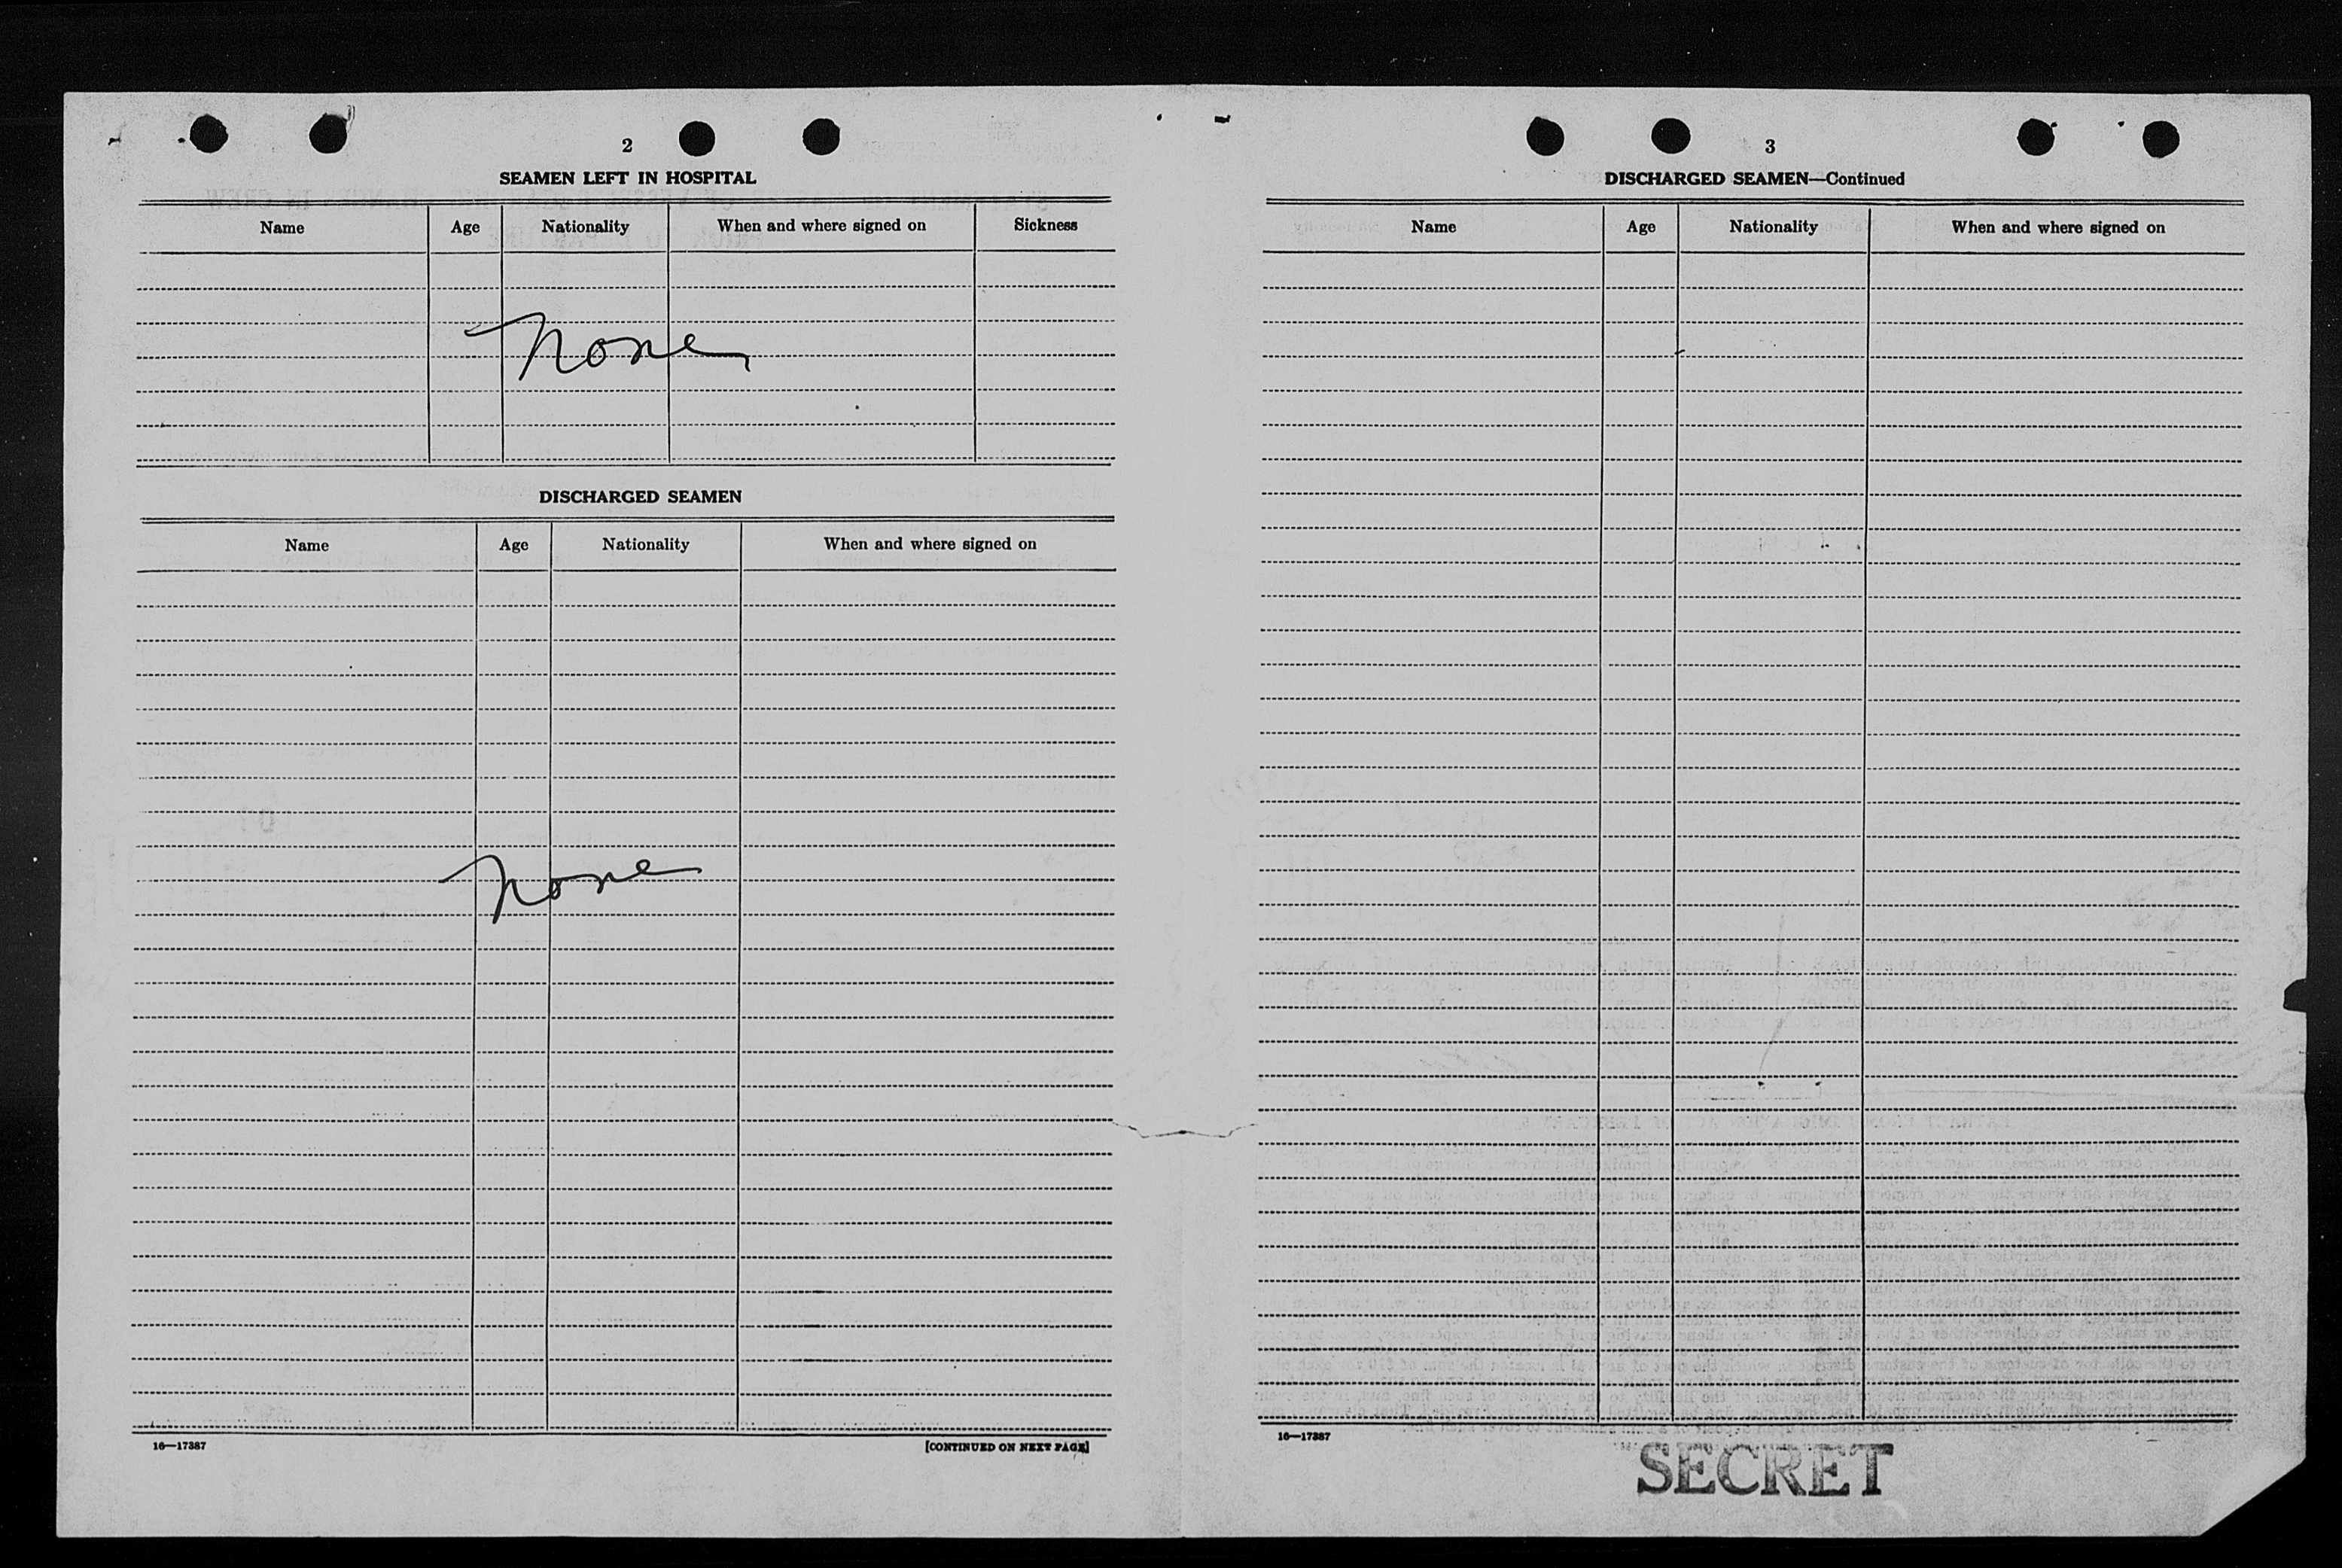 2
SEAMEN LEFT IN HOSPITAL
Name Age Nationality When and where signed on Sickness
None
DISCHARGED SEAMEN
Name Age Nationality When and where signed on
None
16—17387 [CONTINUED ON NEXT PAGE]
3
DISCHARGED SEAMEN—Continued
Name Age Nationality When and where signed on
16—17387
SECRET